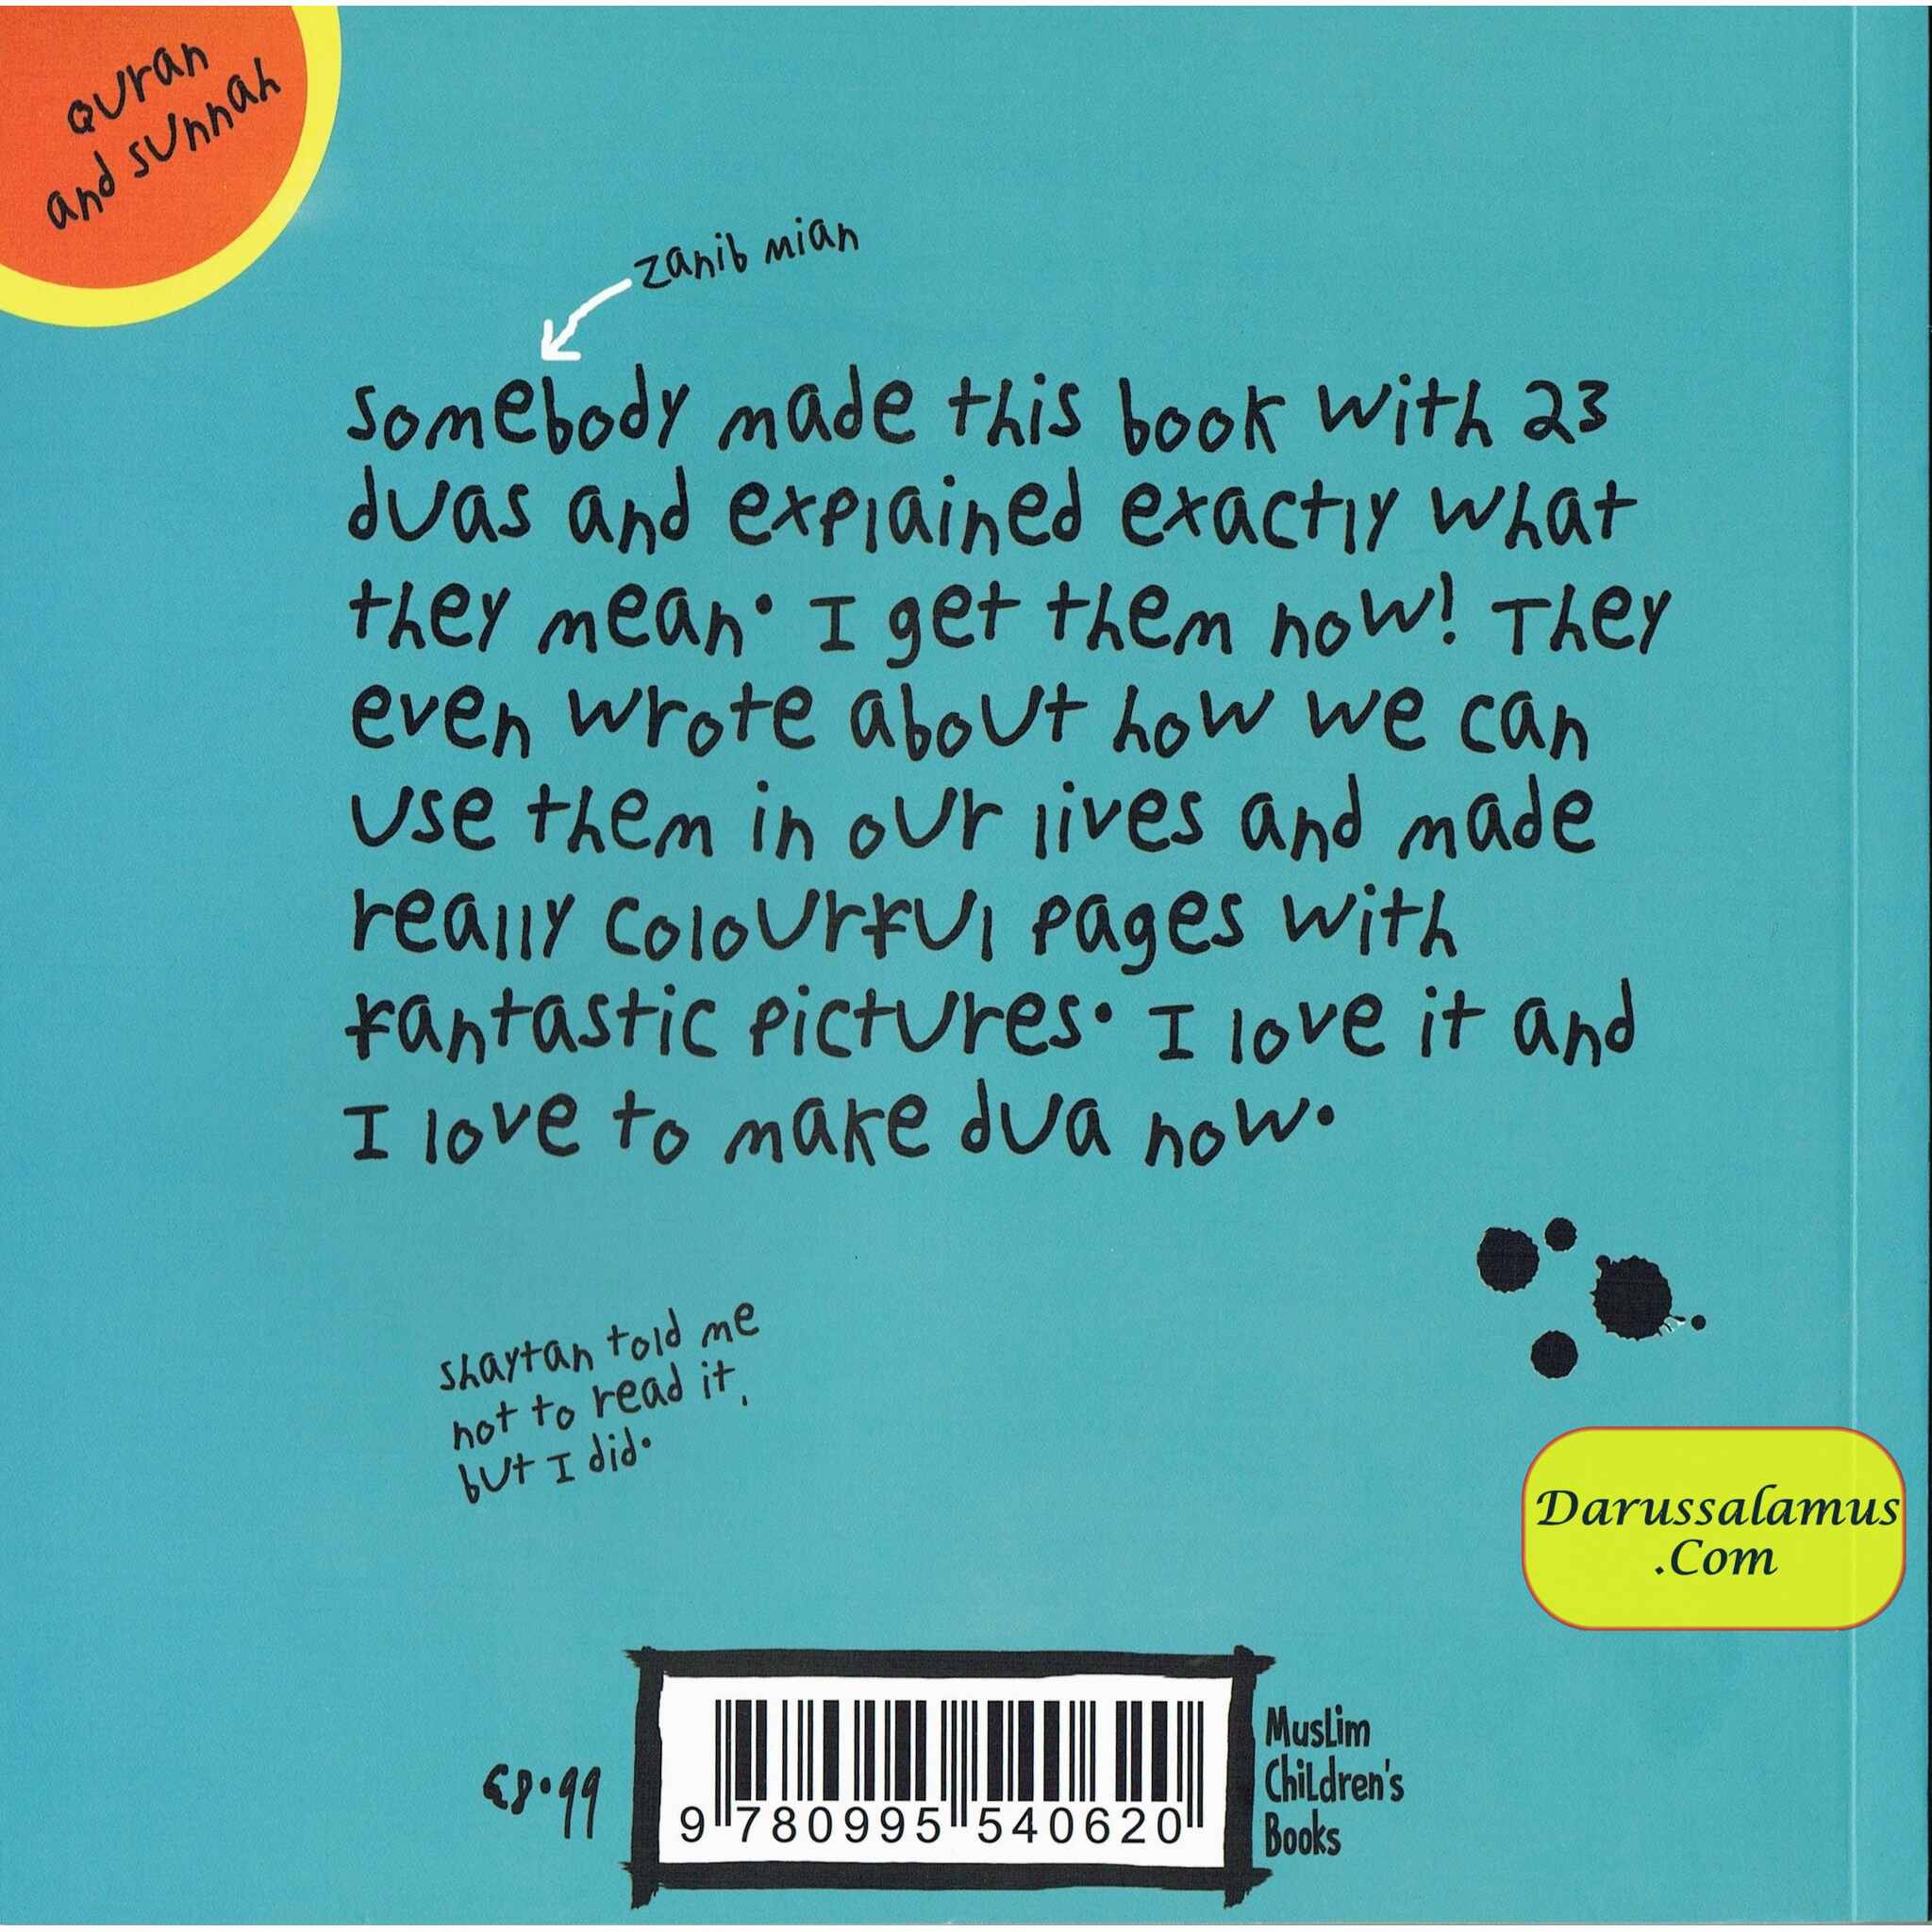 Quran
and sunnah
zanib mian
somebody made this book with 23
duas and explained exactly what
they mean. I get them now! They
even wrote about how we can
use them in our lives and made
really colourful pages with
fantastic pictures. I love it and
I love to make dua now.
shaytan told me
not to read it,
but I did.
Darussalamus
.Com
£8.99
9 780995 540620
Muslim
Children's
Books